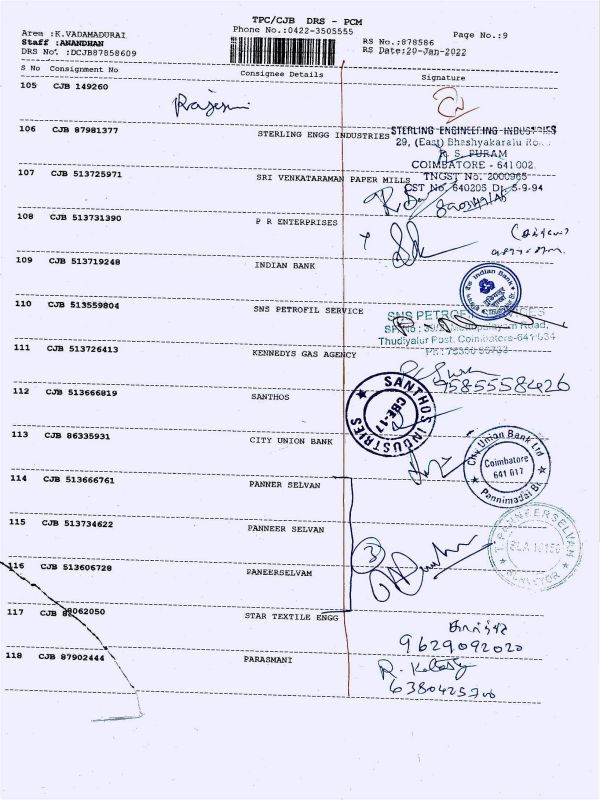 TPC/CJB DRS - PCM
Area :K.VADAMADURAI
Phone No.:0422-3505555
Page No.:9
Staff :ANANDHAN
RS No.:878586
DRS No. :DCJB87858609
RS Date:20-Jan-2022
S No Consignment No Consignee Details Signature
105 CJB 149260
106 CJB 87981377 STERLING ENGG INDUSTRIES
STERLING ENGINEERING INDUSTRIES
29, (East) Bhashyakaralu Road
R. S. PURAM
COIMBATORE - 641 002
TNGST No. 2000965
CST No. 640205 Dt. 5-9-94
107 CJB 513725971 SRI VENKATARAMAN PAPER MILLS
108 CJB 513731390 P R ENTERPRISES
109 CJB 513719248 INDIAN BANK
Indian Bank
110 CJB 513559804 SNS PETROFIL SERVICE
SNS PETROFIL SERVICES
Thudiyalur Post, Coimbatore-641 034
111 CJB 513726413 KENNEDYS GAS AGENCY
9585558426
112 CJB 513666819 SANTHOS
SANTHOS INDUSTRIES
CBE-17
113 CJB 86335931 CITY UNION BANK
City Union Bank Ltd
Coimbatore
641 017
Pannimadai Br.
114 CJB 513666761 PANNER SELVAN
115 CJB 513734622 PANNEER SELVAN
T. PANNEERSELVAN
SURVEYOR
116 CJB 513606728 PANEERSELVAM
3
117 CJB 88062050 STAR TEXTILE ENGG
9629092020
118 CJB 87902444 PARASMANI